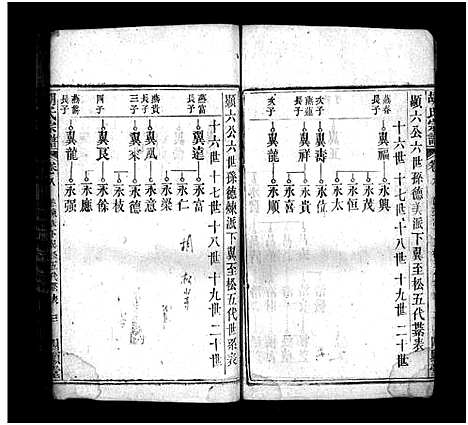 顯六公六世孫德美派下翼至松五代世系表
十六世 十七世 十八世 十九世 二十世
燕春長子
翼福
永興
永茂
永恒
永太
燕蓮次子
翼壽
永位
永喜
次子
翼祥
永貴
永順
胡氏宗譜
顯六公六世孫德煉派下翼至松五代世系表
十六世 十七世 十八世 十九世 二十世
燕富長子
翼遠
永富
永仁
永梁
燕貴長子
翼鳳
永意
三子
翼來
永德
永枝
四子
翼良
永餘
永應
長子
翼龍
永强
胡氏宗譜
卷八